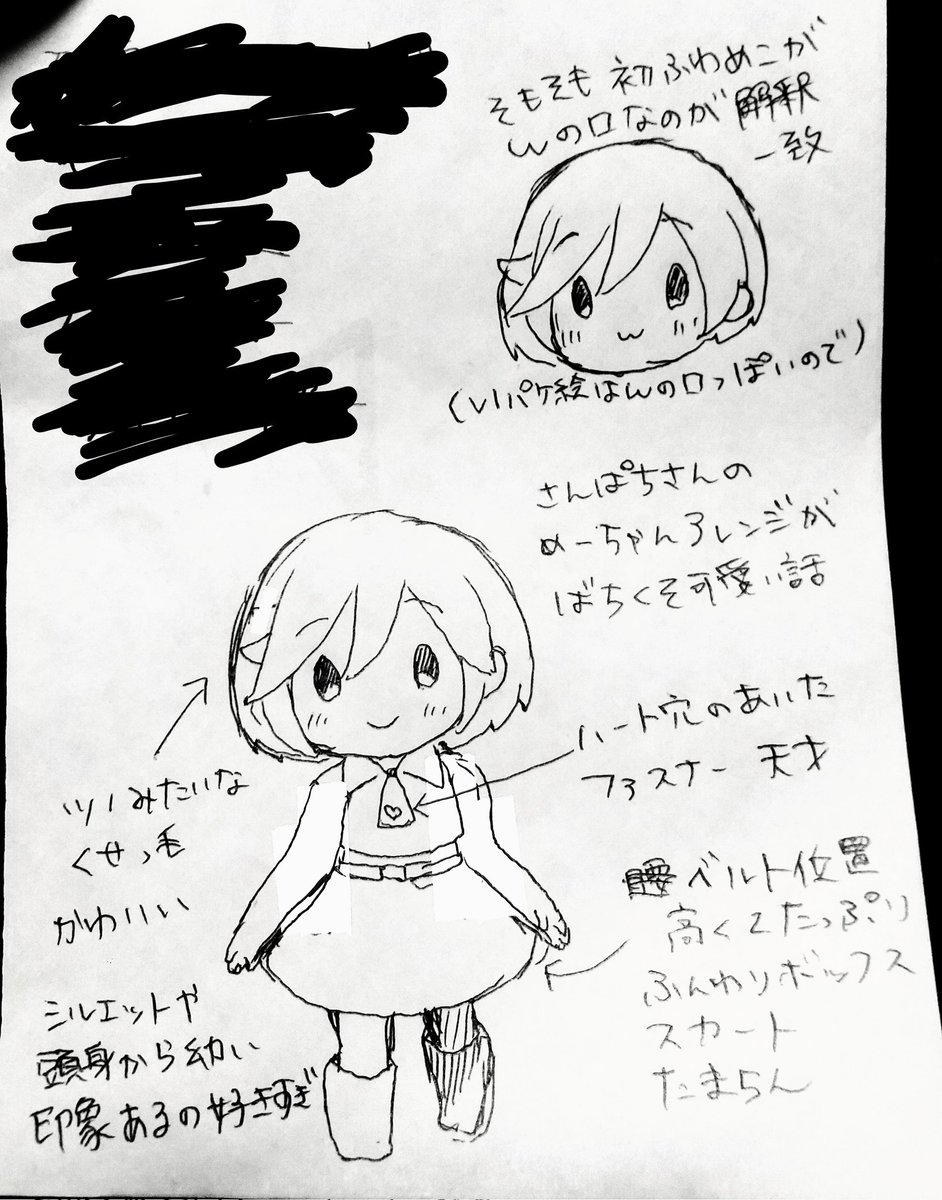 そもそも初ふわめこが
ωの口なのが解釈
一致
(Vパケ絵はんの口っぽいので)
さんぱちさんの
めーちゃんアレンジが
ばちくそ可愛い話
ハート穴のあいた
ファスナー 天才
ツノみたいな
くせっ毛
かわいい
腰ベルト位置
高くてたっぷり
ふんわりボックス
スカート
たまらん
シルエットや
頭身から幼い
印象あるの好きすぎ